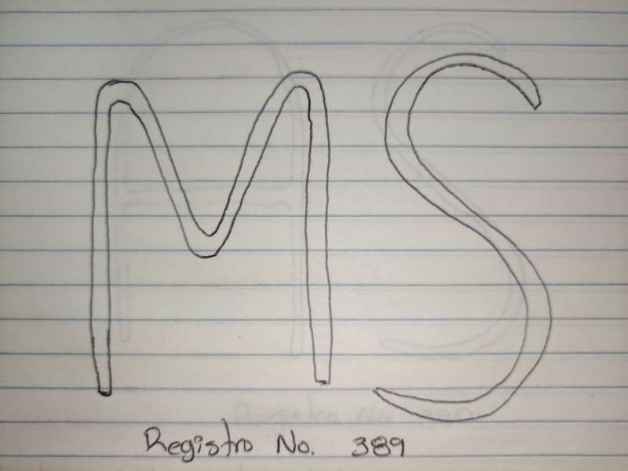 MS
Registro No. 389